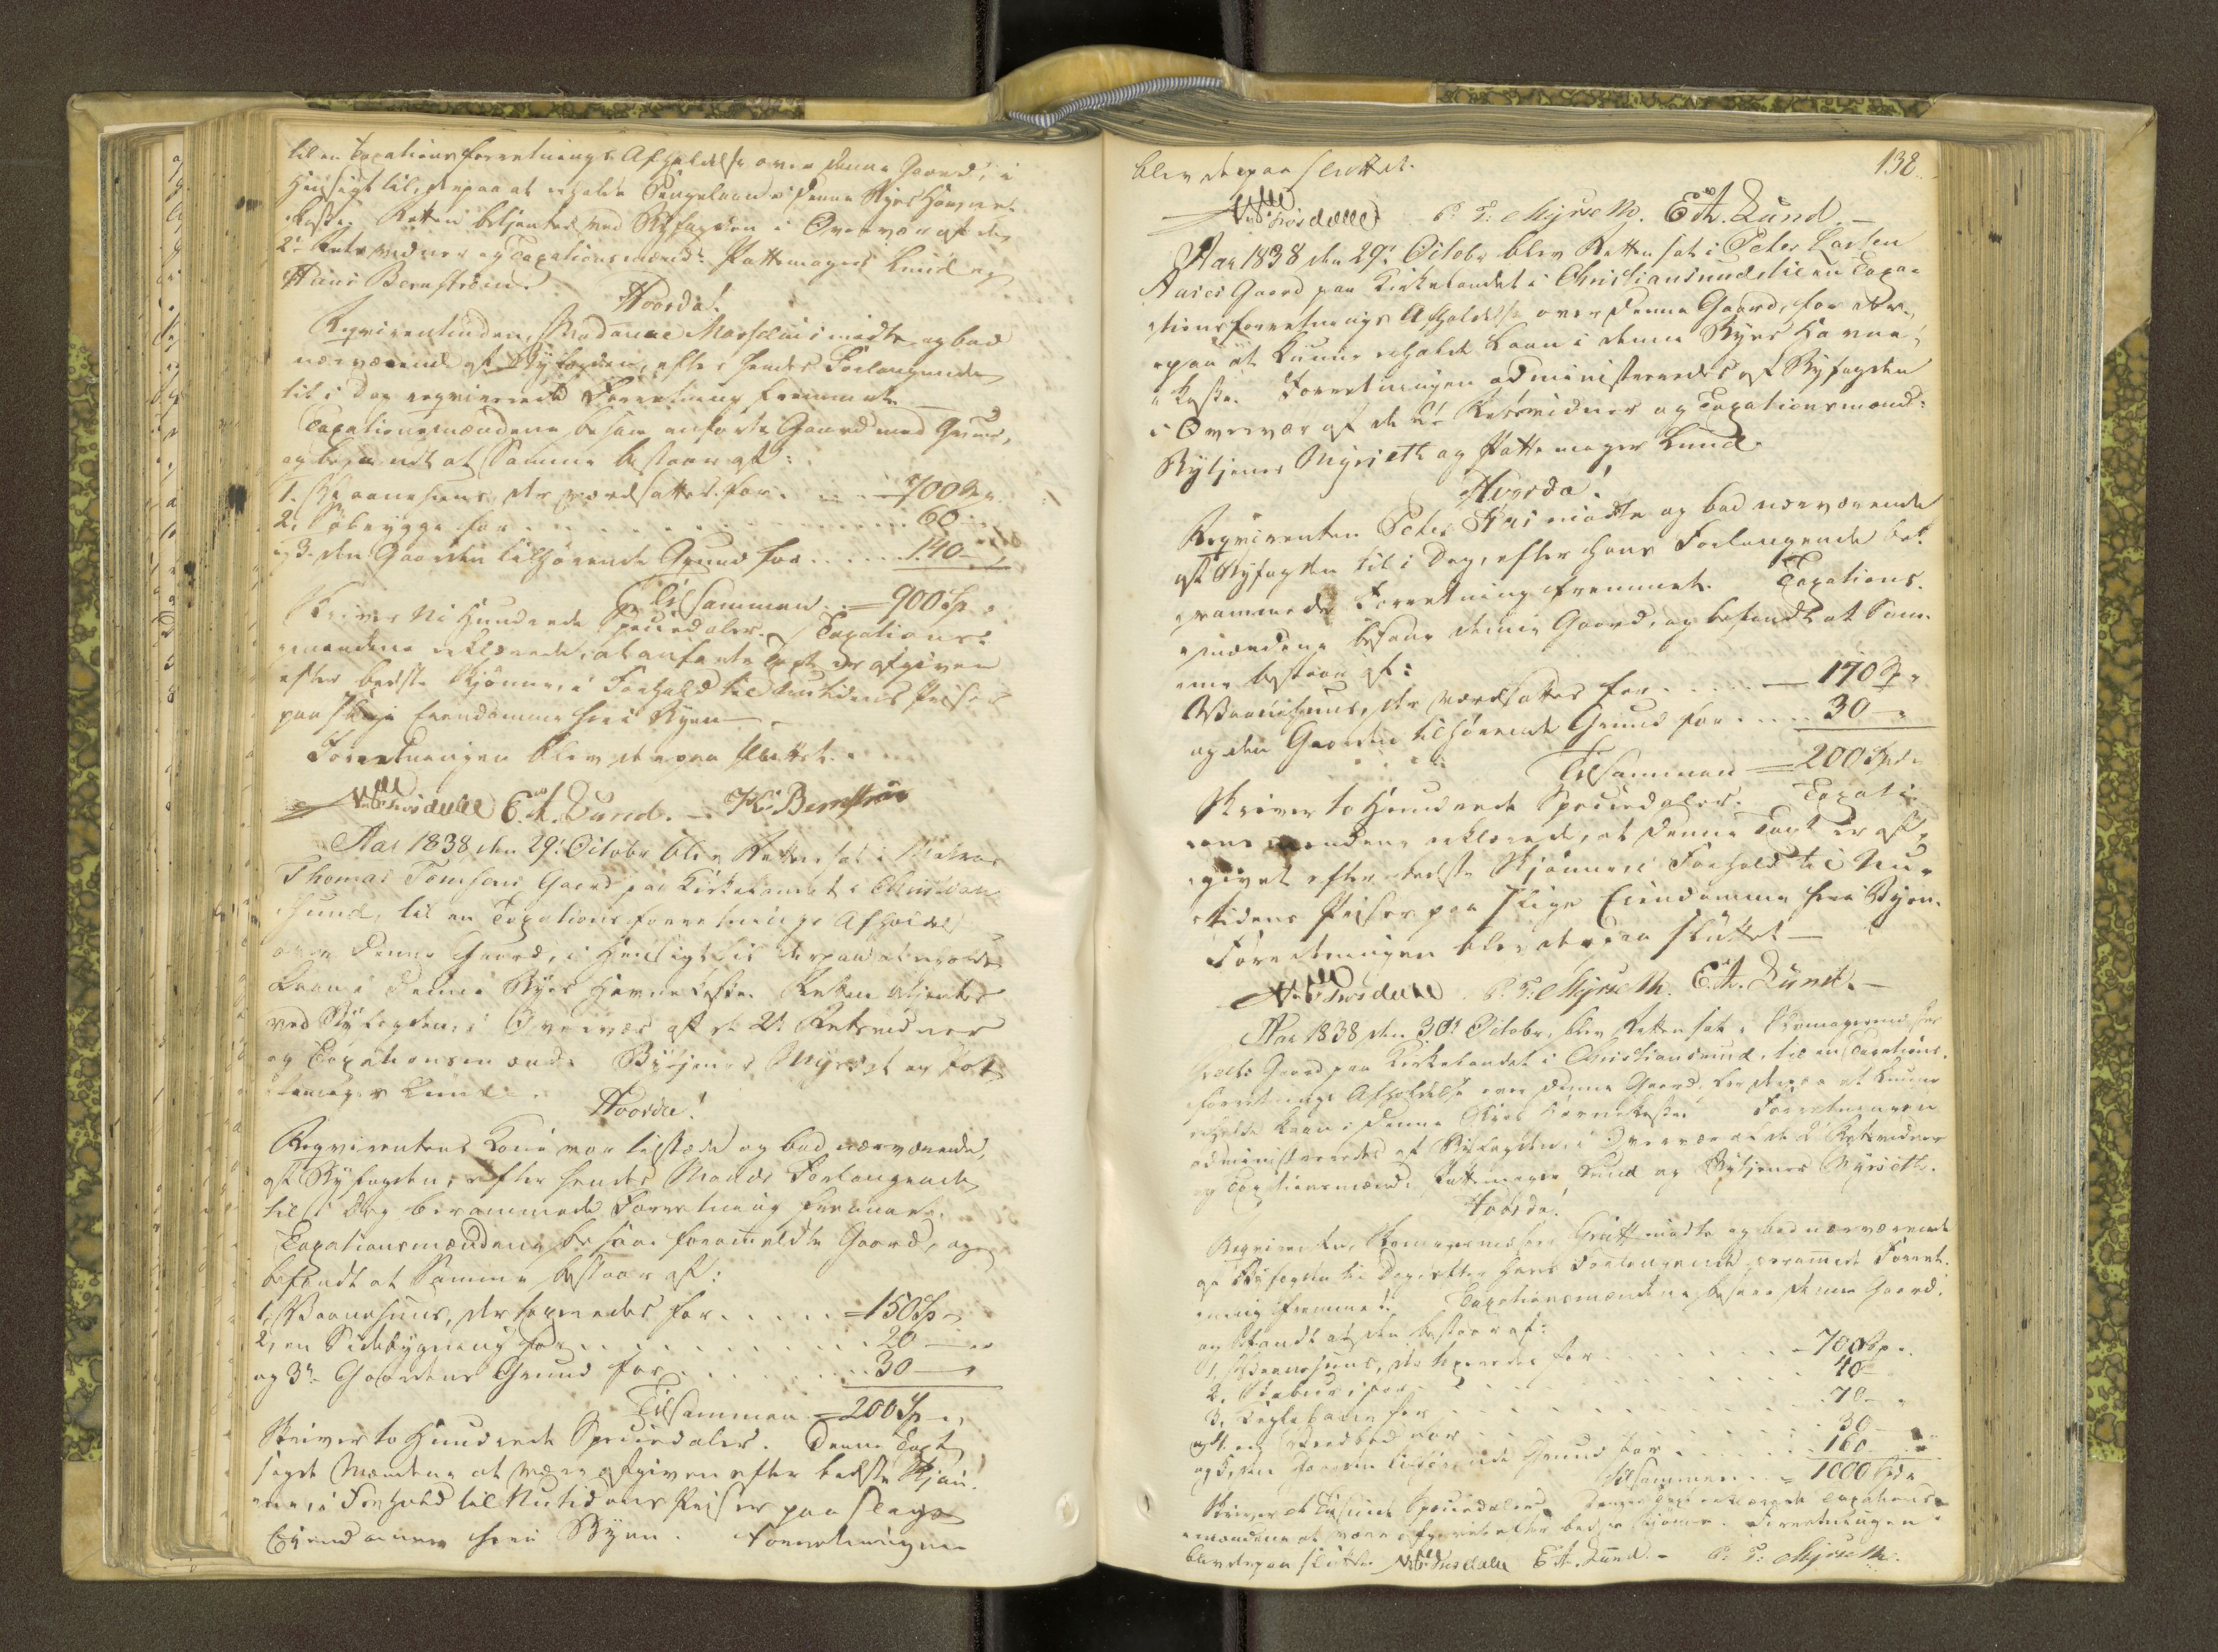 til en Taxationsforretnings Afholdelse over denne Gaard, i
Hensigt til derpaa at erholde Pengelaan i denne Byes Havne-
kasse. Retten betjentes ved Byfogden i Overvær af de
2de Retsvidner og Taxationsmænd: Pottemager Lund og
Hans Bernstrøm.
Hvorda!
Reqvirentinden, Madame mødte og bad
nærværende af Byfogden, efter hendes Forlangende
til i Dag reqvirerede Forretning fremmet.
Taxationsmændene besaae anførte Gaard med Grund,
og befandt at Samme bestaaer af:
1. Vaaneshuus, der værdsattes for . . . 700 Sp.
2. Søbrygge for . . . 60 –
og 3. den Gaarden tilhørende Grund for . . . 140 –
Tilsammen = 900 Sp.
Skriver Ni Hundrede Speciedaler. Taxations-
mændene erklærede, at anførte Taxt er afgiven
efter bedste Skjønne, i Forhold til Nutidens Priser
paa slige Eiendomme her i Byen –
Forretningen blev derpaa sluttet.
E. A. Lund. – H. Bernstrøm
Aar 1838 den 29. Octobr blev Retten sat i
Thomas Tomsens Gaard paa Kirkelandet i Christian
sund, til en Taxationsforretnings Afholdelse
over denne Gaard, i Hensigt til derpaa at erholde
Laan i denne Byes Havnekasse. Retten betjentes
ved Byfogden, i Overvær af de 2de Retsvidner
og Taxationsmænd: Bytjener Myrseth og Potte
mager Lund.
Hvorda!
Reqvirentens Kone var tilstæde og bad nærværende,
af Byfogden, efter hendes Mands Forlangende
til i Dag berammede Forretning fremmet.
Taxationsmændene besaae foranmeldte Gaard, og
befandt at Samme bestaaer af:
1, Vaaneshuus, der taxeredes for . . . = 150 Sp
2, en Sidebygning for . . . 20 –
og 3. Gaardens Grund for . . . 30 –
Tilsammen = 200 Sp
Skriver to Hundrede Speciedaler. Denne Taxt
sagde Mændene at være afgiven efter bedste Skjøn-
nne, i Forhold til Nutidens Priser paa slige
Eiendomme her i Byen. Forretningen
138.
blev derpaa sluttet.
P. T. Myrseth. E. A. Lund. –
Aar 1838 den 29. Octobr blev Retten sat i Peter Larsen
Aases Gaard paa Kirkelandet i Christiansund til en Taxa-
tionsforretnings Afholdelse over denne Gaard, for der-
paa at kunne erholde Laan i denne Byes Havne-
kasse. Forretningen administreredes af Byfogden
i Overvær af de 2de Retsvidner og Taxationsmænd:
Bytjener Myrseth og Pottemager Lund.
Hvorda!
Reqvirenten Peter mødte og bad nærværende
af Byfogden til i Dag, efter hans Forlangende be-
rammede Forretning fremmet. Taxations-
mændene besaae denne Gaard, og befandt at Sam-
me bestaaer af:
Vaaneshuus, der værdsattes for . . . 170 Sp
og den Gaarden tilhørende Grund for . . . 30 –
Tilsammen = 200 Spd
Skriver to Hundrede Speciedaler. Taxati-
onsmændene erklærede, at denne Taxt er af-
givet efter bedste Skjønne, i Forhold til Nu-
tidens Priser paa slige Eiendomme her i Byen.
Forretningen blev derpaa sluttet –
P. T. Myrseth. E. A. Lund. –
Aar 1838 den 30. Octobr, blev Retten sat i
Gaard paa Kirkelandet i Christiansund, til en Taxations-
forretnings Afholdelse over denne Gaard, for derpaa at kunne
erholde Laan i denne Byes Havnekasse. Forretningen
administreredes af Byfogden, i Overvær af de 2de Retsvidner
og Taxationsmænd: Pottemager Lund og Bytjener Myrseth.
Hvorda!
Reqvirenten, mødte og bad nærværende
af Byfogden til i Dag, efter hans Forlangende berammede Forret-
ning fremmet. Taxationsmændene besaae denne Gaard,
og befandt at den bestaaer af:
1, Vaaneshuus, der taxeredes for . . . 700 Sp
2. for . . . 40 –
3, for . . . 70 –
og 4. for . . . 30
og 5, den Gaarden tilhørende Grund for . . . 160
Tilsammen = 1000 Spd
Skriver et Tusinde Speciedaler. Denne Taxt erklærede Taxations-
mændene at være afgivet efter bedste Skjønne. Forretningen
blev derpaa sluttet. E. A. Lund. – P. T. Myrseth.